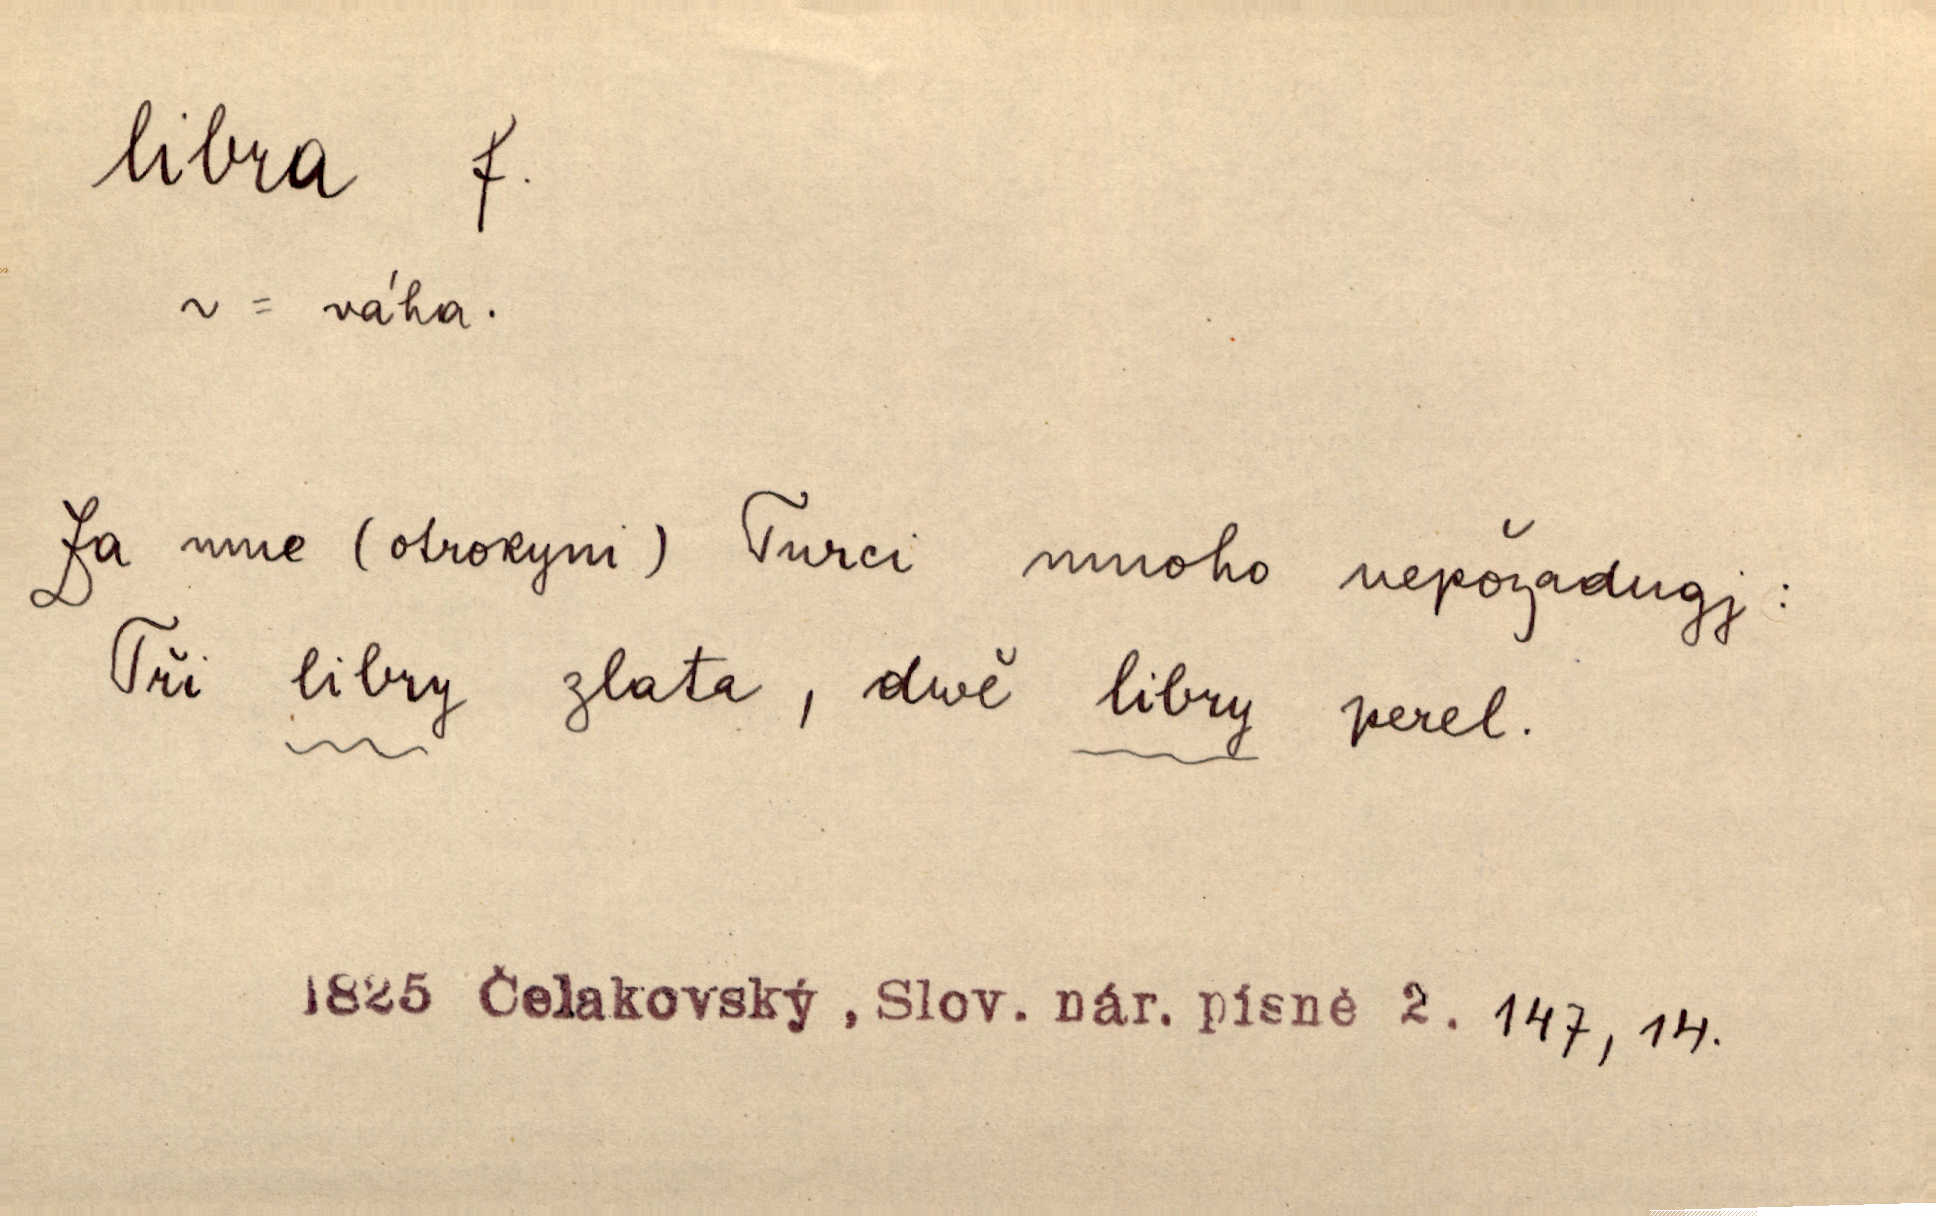 libra f.
~ = váha.
Za mne (otrokyni) Turci mnoho nepožadugj:
Tři libry zlata, dwě libry perel.
1825 Čelakovský, Slov. nár. písně 2. 147, 14.